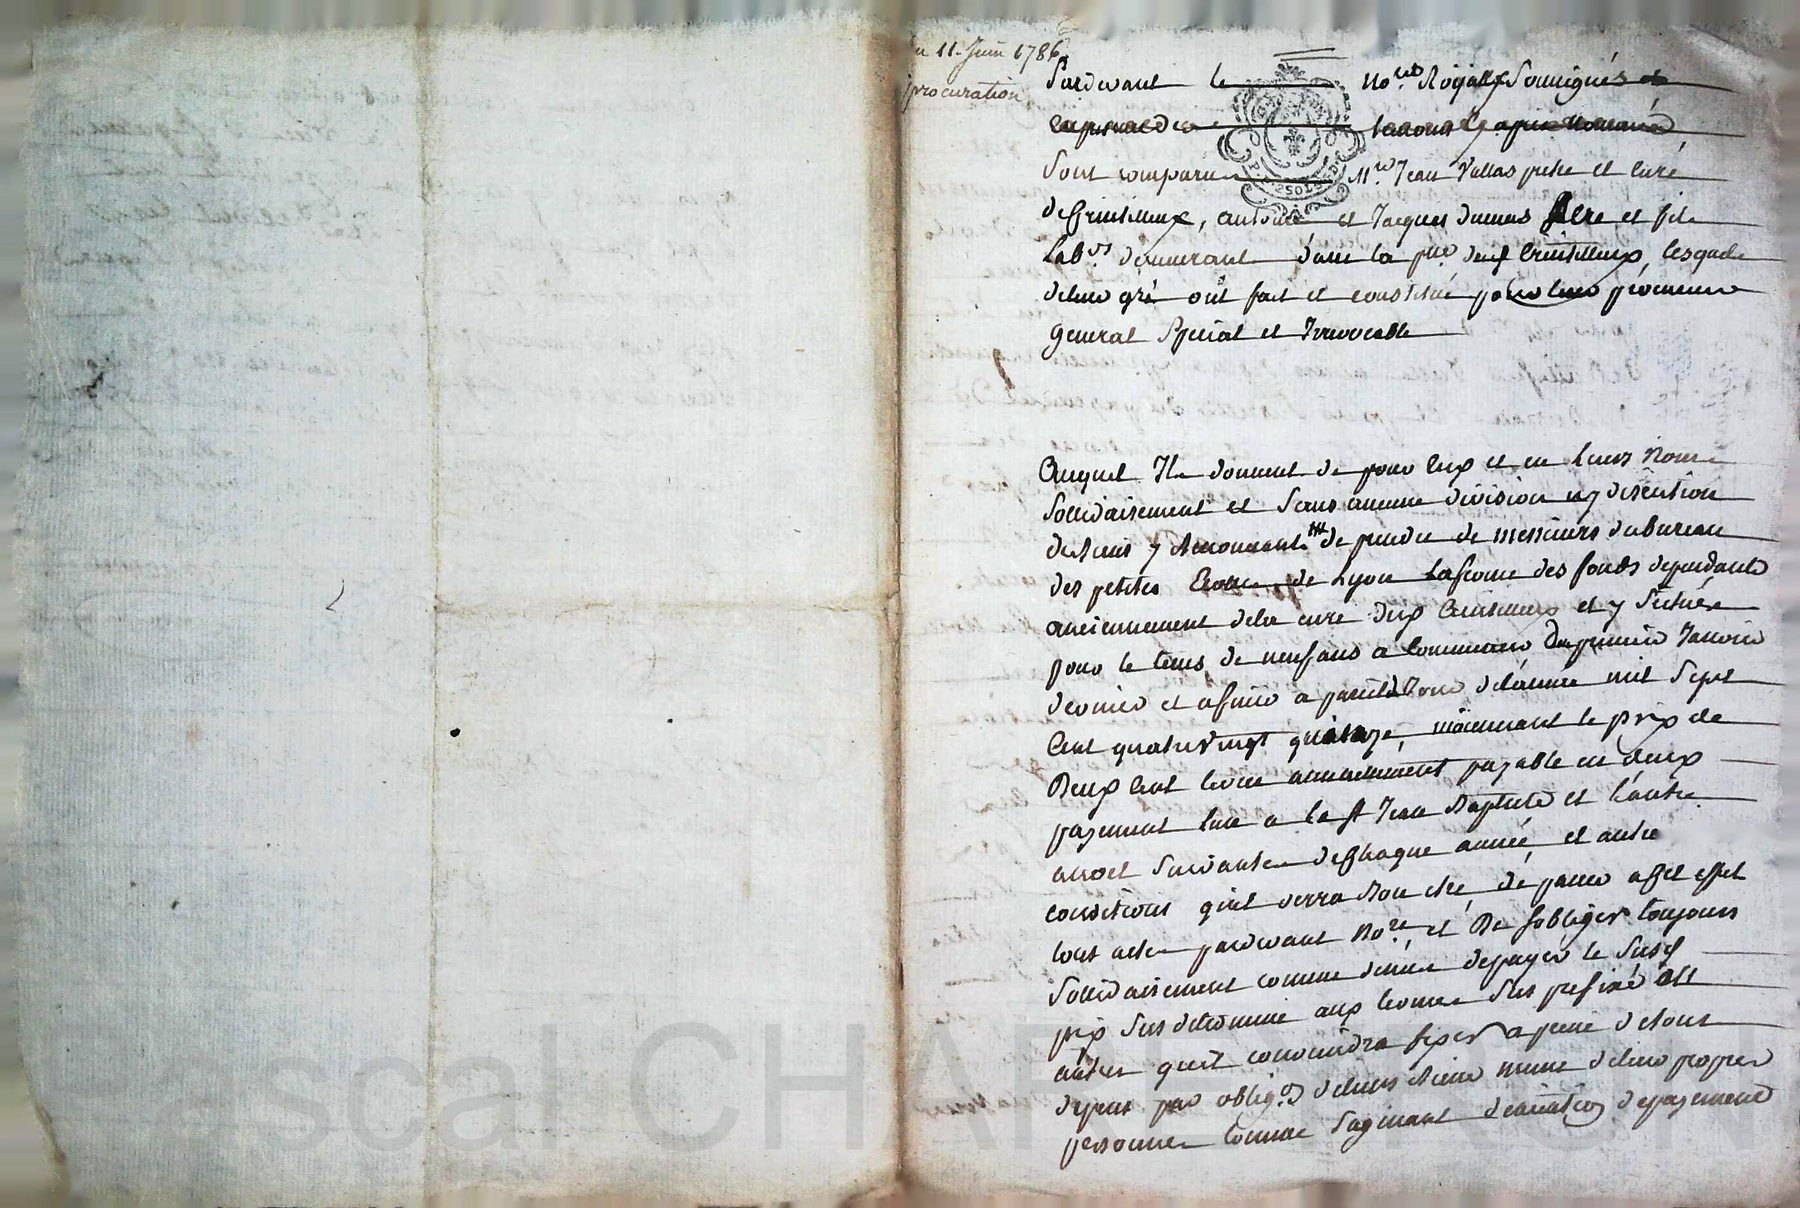 du 11 Juin 1786
procuration
Pardevant le no.res Royaux Soussignés et
Sont comparu M.re Jean Vallas pretre et curé
de Crintilleux, antoine et Jacques dumas Pere et fils
Lab.rs demeurants dans la p.sse dud Crintilleux, lesquels
de leur gré ont fait et constitué pour leur procureur
general Special et Irrevocable
Auquel Ils donnent de pour Eux et en leurs Noms
Sollidairement et Sans aucune division ny discution
de biens y Renoncants de prendre de messieurs du bureau
des petites Ecoles de Lyon La ferme des fonds dependants
anciennement de la cure dud Crintilleux et y Situés
pour le tems de neuf ans a Commencer Du premier Janvier
dernier et a finir a pareil Jour de l'année mil Sept
Cent quatrevingt quatorze, moiennant le prix de
Deux Cent livres annuellement payable en deux
payement Lun a la St Jean Baptiste et L'autre
Suivante de Chaque année, et autre
conditions quil verra Bon etre, de passer a Cet effet
tous actes pardevant No.re et De Sobliger toujours
Sollidairement comme dessus de payer le Susd
prix Sus determiné aux termes Sus prefixé et
autres quil conviendra fixer a peine de tous
depens par oblig.on de leurs biens meme de leur propres
personnes comme Sagissant de payement
Pascal CHARETRON